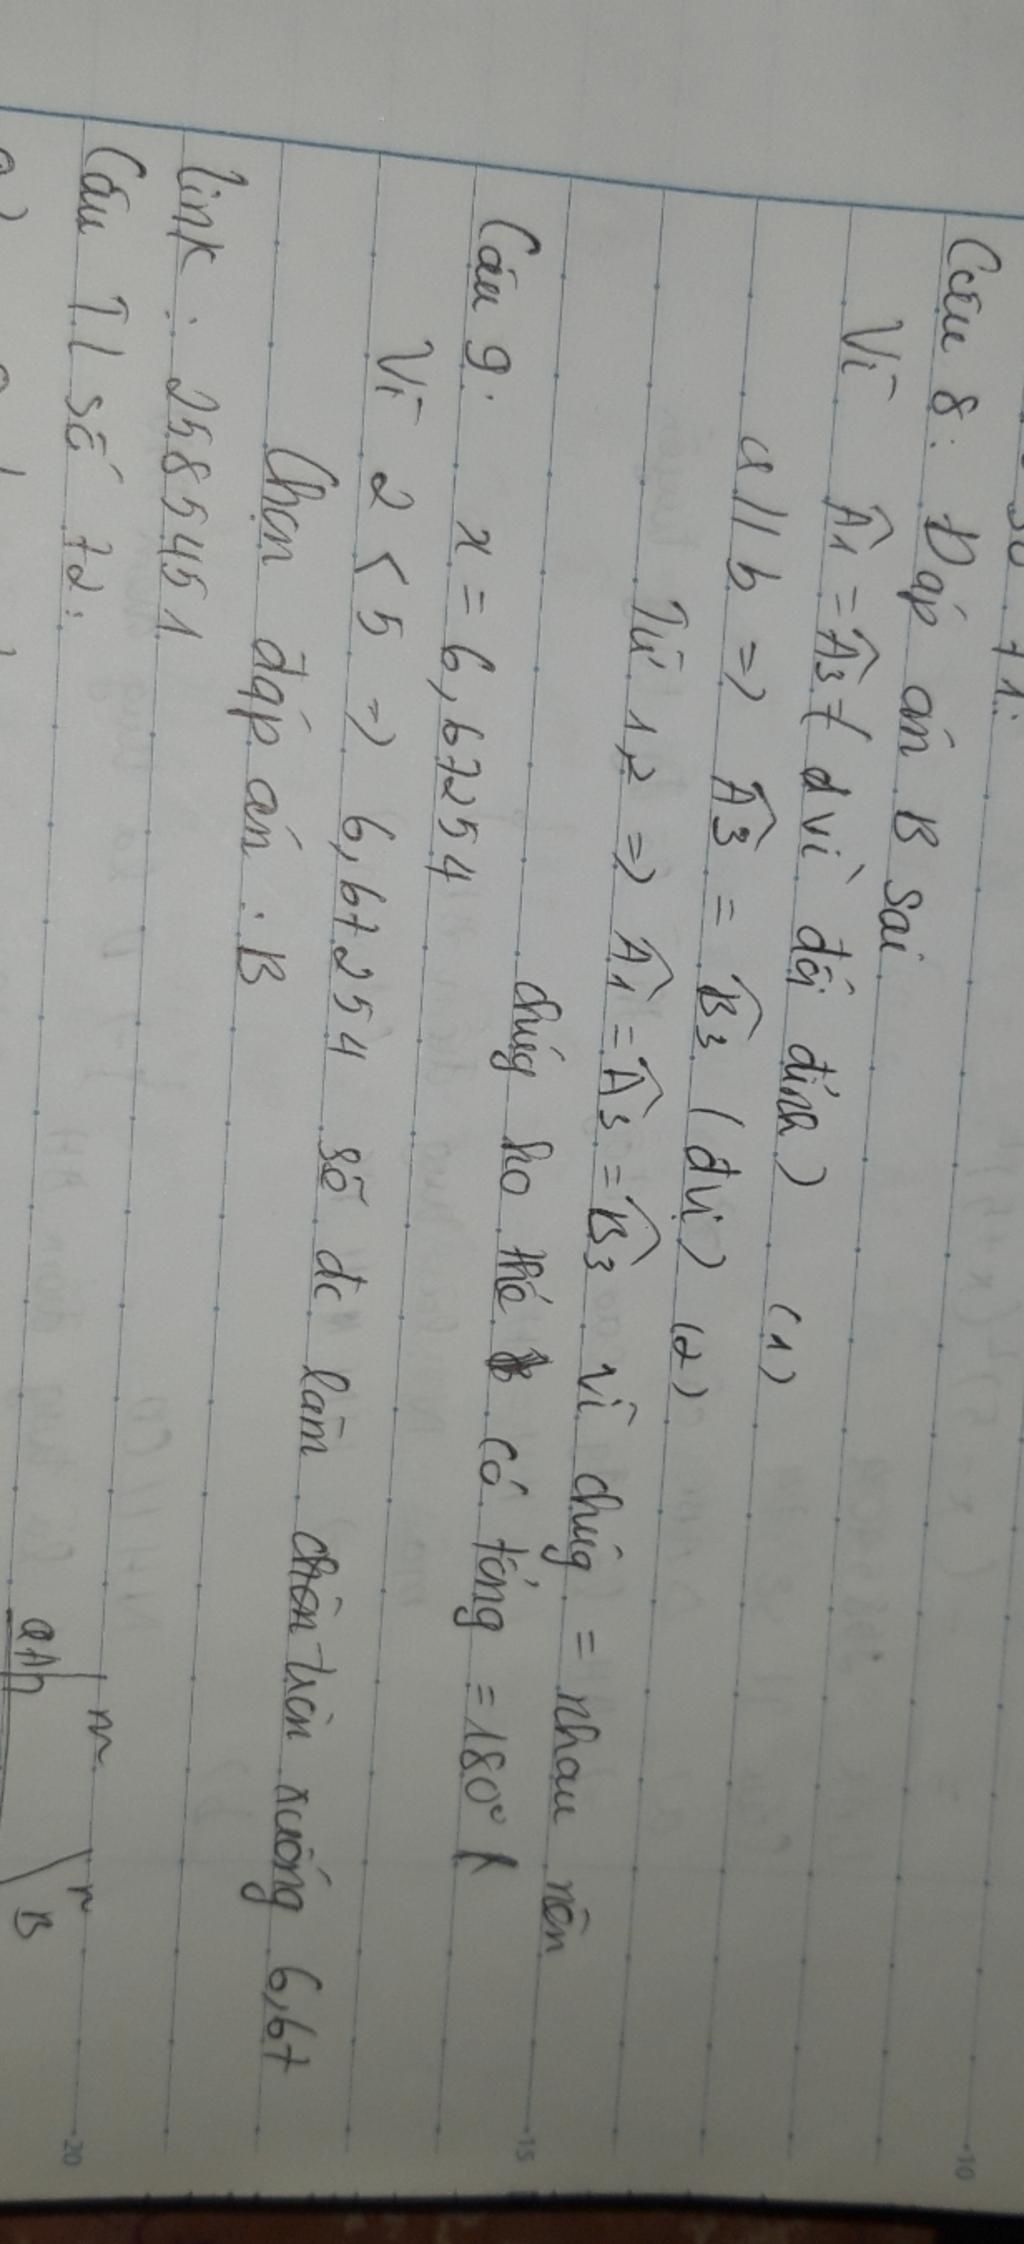 71:
Câu 8: Đáp án B sai
Vì Â1 = Â3 (vì đối đỉnh) (1)
a // b => Â3 = B̂3 (đvị) (2)
Từ 1,2 => Â1 = Â3 = B̂3 vì chúg = nhau nên
chúg ko thể có tổng = 180°
Câu 9: x = 6,67254
Vì 2 < 5 => 6,67254 số đc làm tròn xuống 6,67
Chọn đáp án: B
link: 2585451
Câu 71 số 72:
m
n
A
B
-10
-15
-20